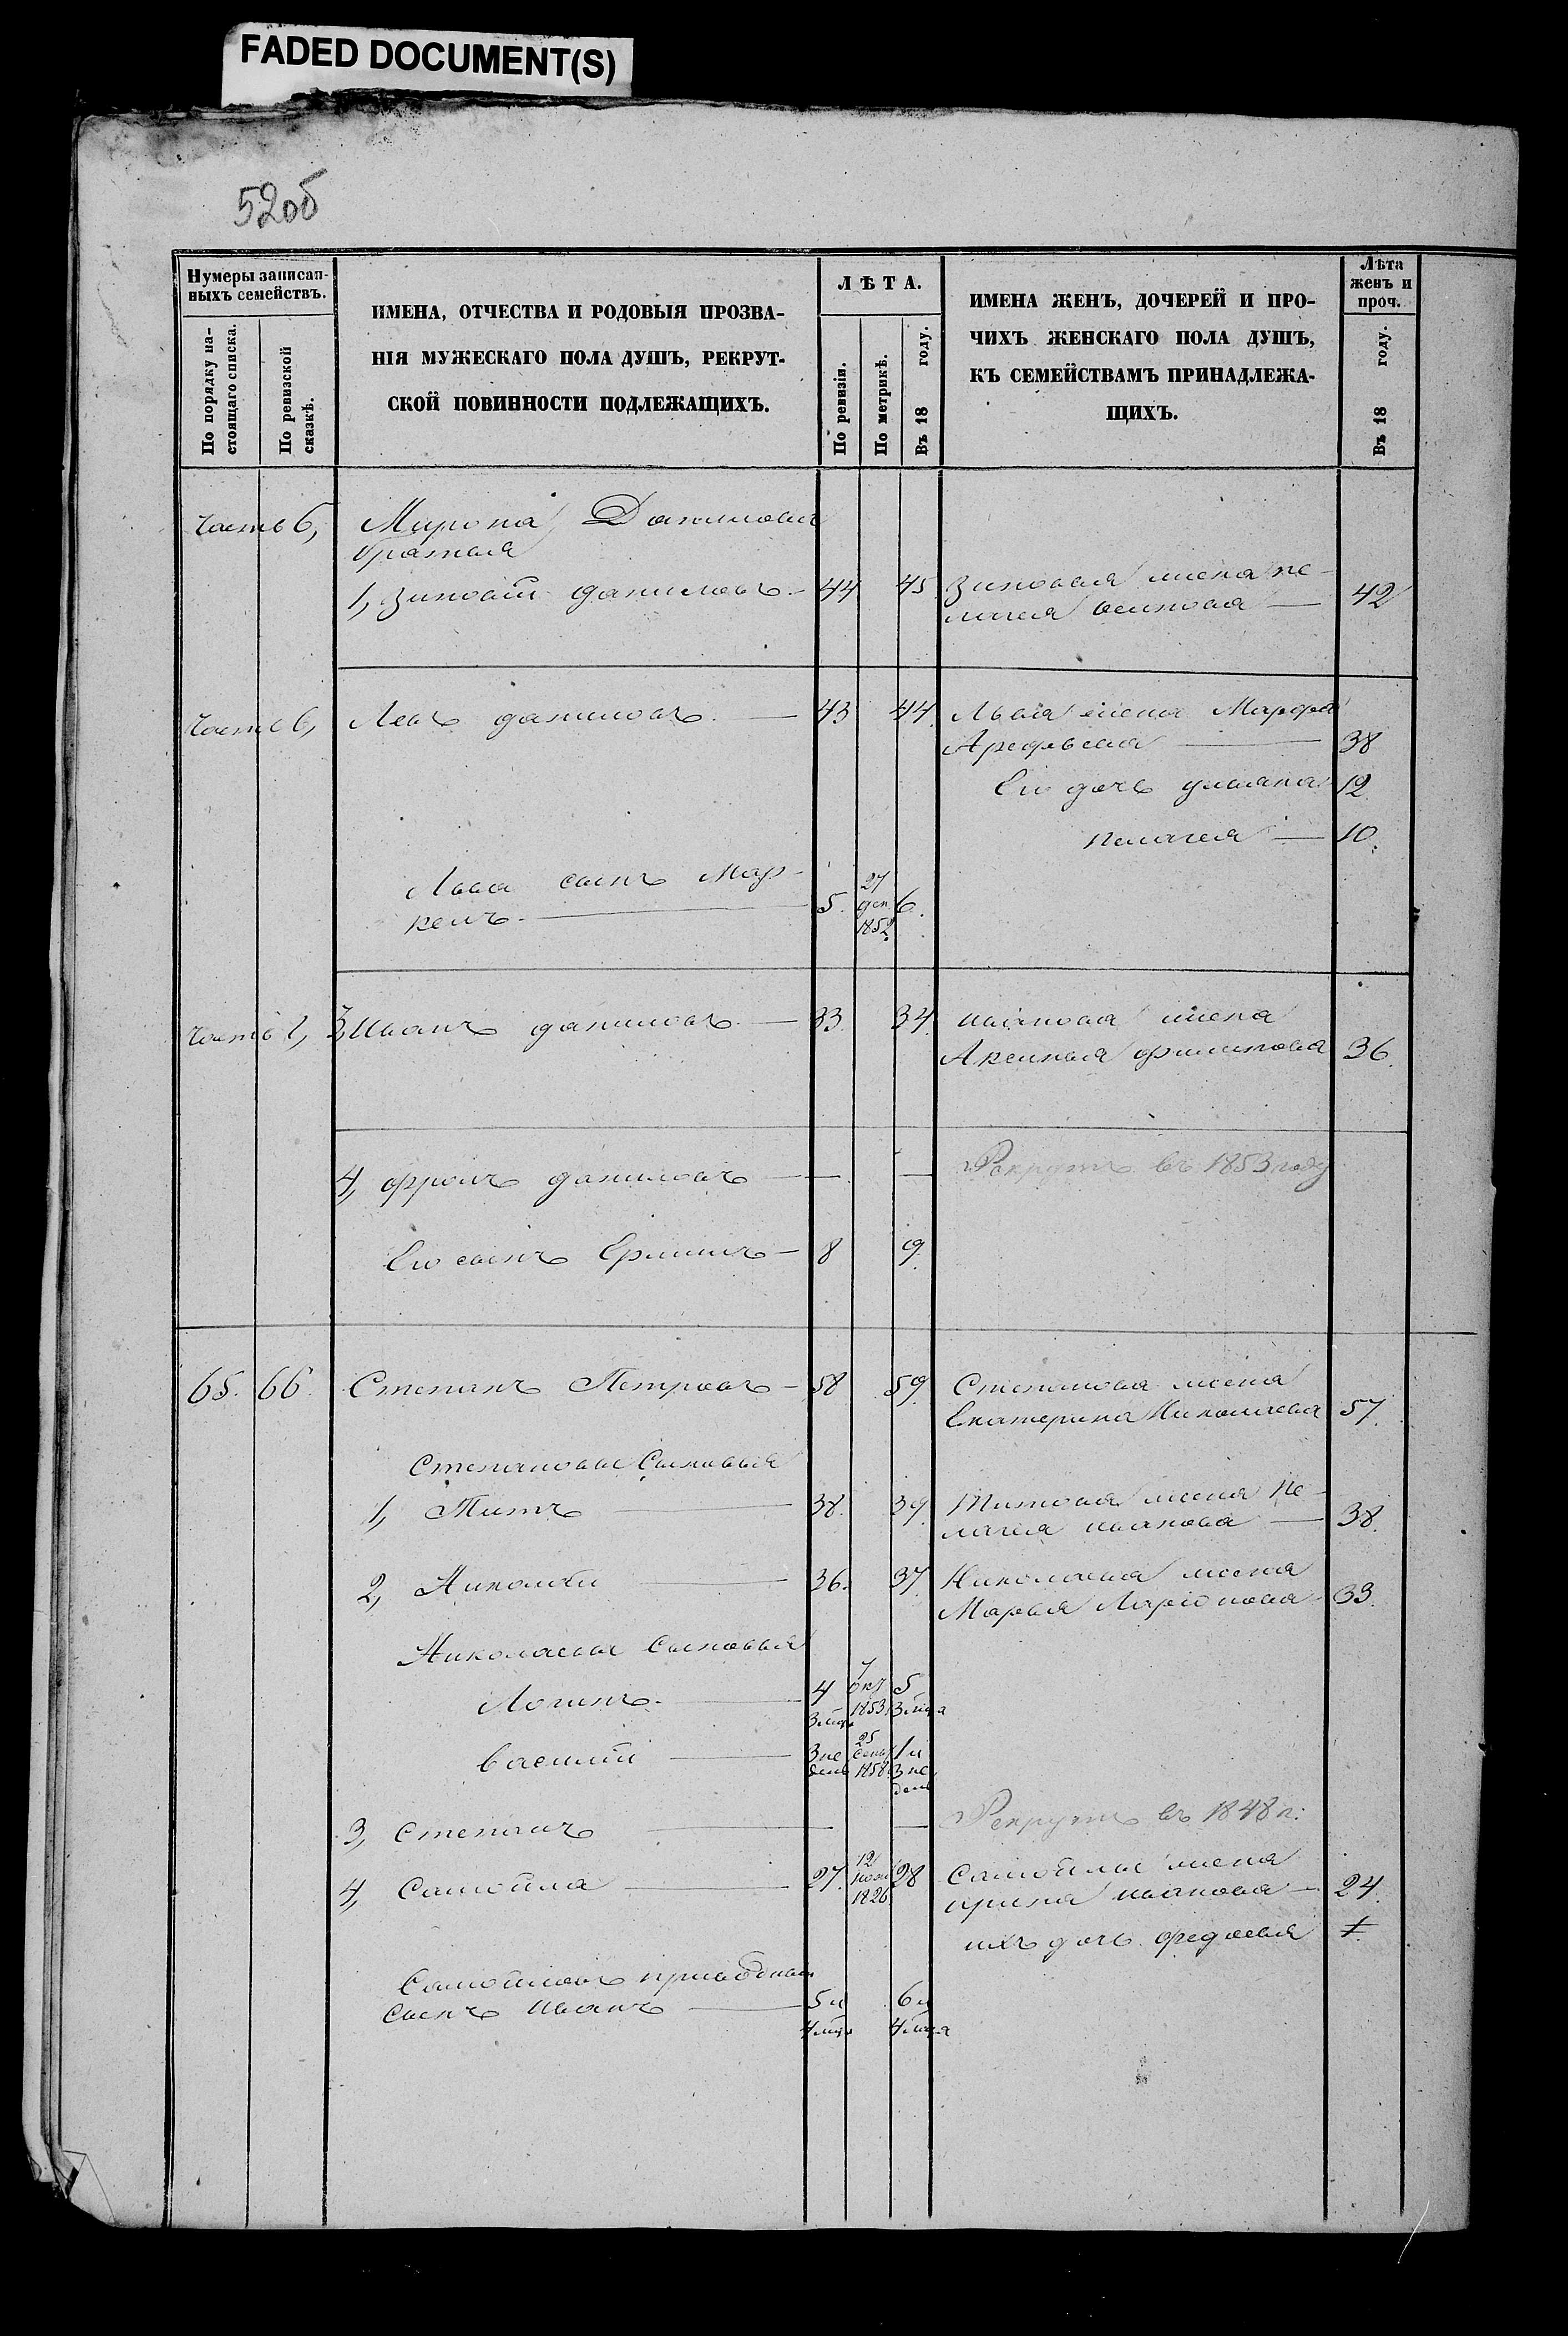 FADED DOCUMENT(S)
52об
Нумеры записан-
ныхъ семействъ.
По порядку на-
стоящаго списка.
По ревизской
сказкѣ.
ИМЕНА, ОТЧЕСТВА И РОДОВЫЯ ПРОЗВА-
НІЯ МУЖЕСКАГО ПОЛА ДУШЪ, РЕКРУТ-
СКОЙ ПОВИННОСТИ ПОДЛЕЖАЩИХЪ.
ЛѢТА.
По ревизіи.
По метрикѣ.
Въ 18 году.
ИМЕНА ЖЕНЪ, ДОЧЕРЕЙ И ПРО-
ЧИХЪ ЖЕНСКАГО ПОЛА ДУШЪ,
КЪ СЕМЕЙСТВАМЪ ПРИНАДЛЕЖА-
ЩИХЪ.
Лѣта
женъ и
проч.
Въ 18 году.
Мирона Данилова
братья
1, Зиновій даниловъ 44 45 Зиновья жена пе-
лагея осипова 42
Левъ даниловъ 43 44 Львая жена Марфа
Арефьева 38
Его дочь ульяна 12
пелагея 10
Льва сынъ Мар-
келъ 5. 27 дек 1852 6.
3, Иванъ даниловъ 33 34 иванова жена
Аксинья филипова 36
4, фролъ даниловъ Рекрутъ въ 1853 году
Его сынъ Ермилъ 8 9
65. 66. Степанъ Петровъ 58 59 Степанова жена
Екатерина Николаева 57
Степановы Сыновья
1, Титъ 38. 39. Титова жена Пе-
лагея иванова 38
2, Николай 36. 37 Николаева жена
Марья Ларіонова 33.
Николаевы Сыновья
Логинъ 4 3 мѣся 7 окт 1853 5 3 мѣсяца
Василій 3 не дель 25 сент 1858 1 и 3 не дель
3, Степанъ Рекрутъ въ 1848 г:
4, Самойла 27. 12 1826 28 Самойлы жена
ирина иванова 24
ихъ дочь федосья 1
Самойловъ приводной
сынъ иванъ 5 и 4 мѣся 6 и 4 мѣсяца